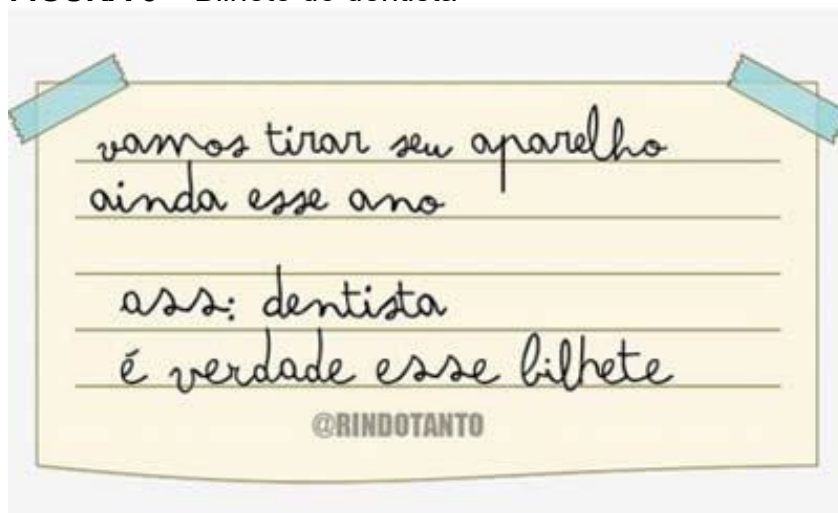 vamos tirar seu aparelho
ainda esse ano
ass: dentista
é verdade esse bilhete
@RINDOTANTO